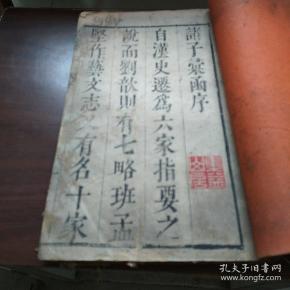 諸子彙函序
自漢史遷爲六家指要之
說而劉歆則有七略班孟
堅作藝文志又有名十家
孔夫子旧书网